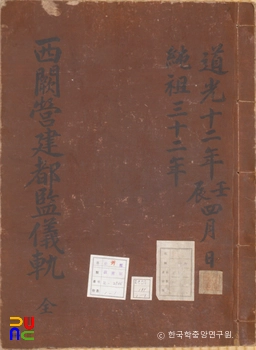 道光十二年壬辰四月 日
純祖三十二年
西闕營建都監儀軌 全
© 한국학중앙연구원.